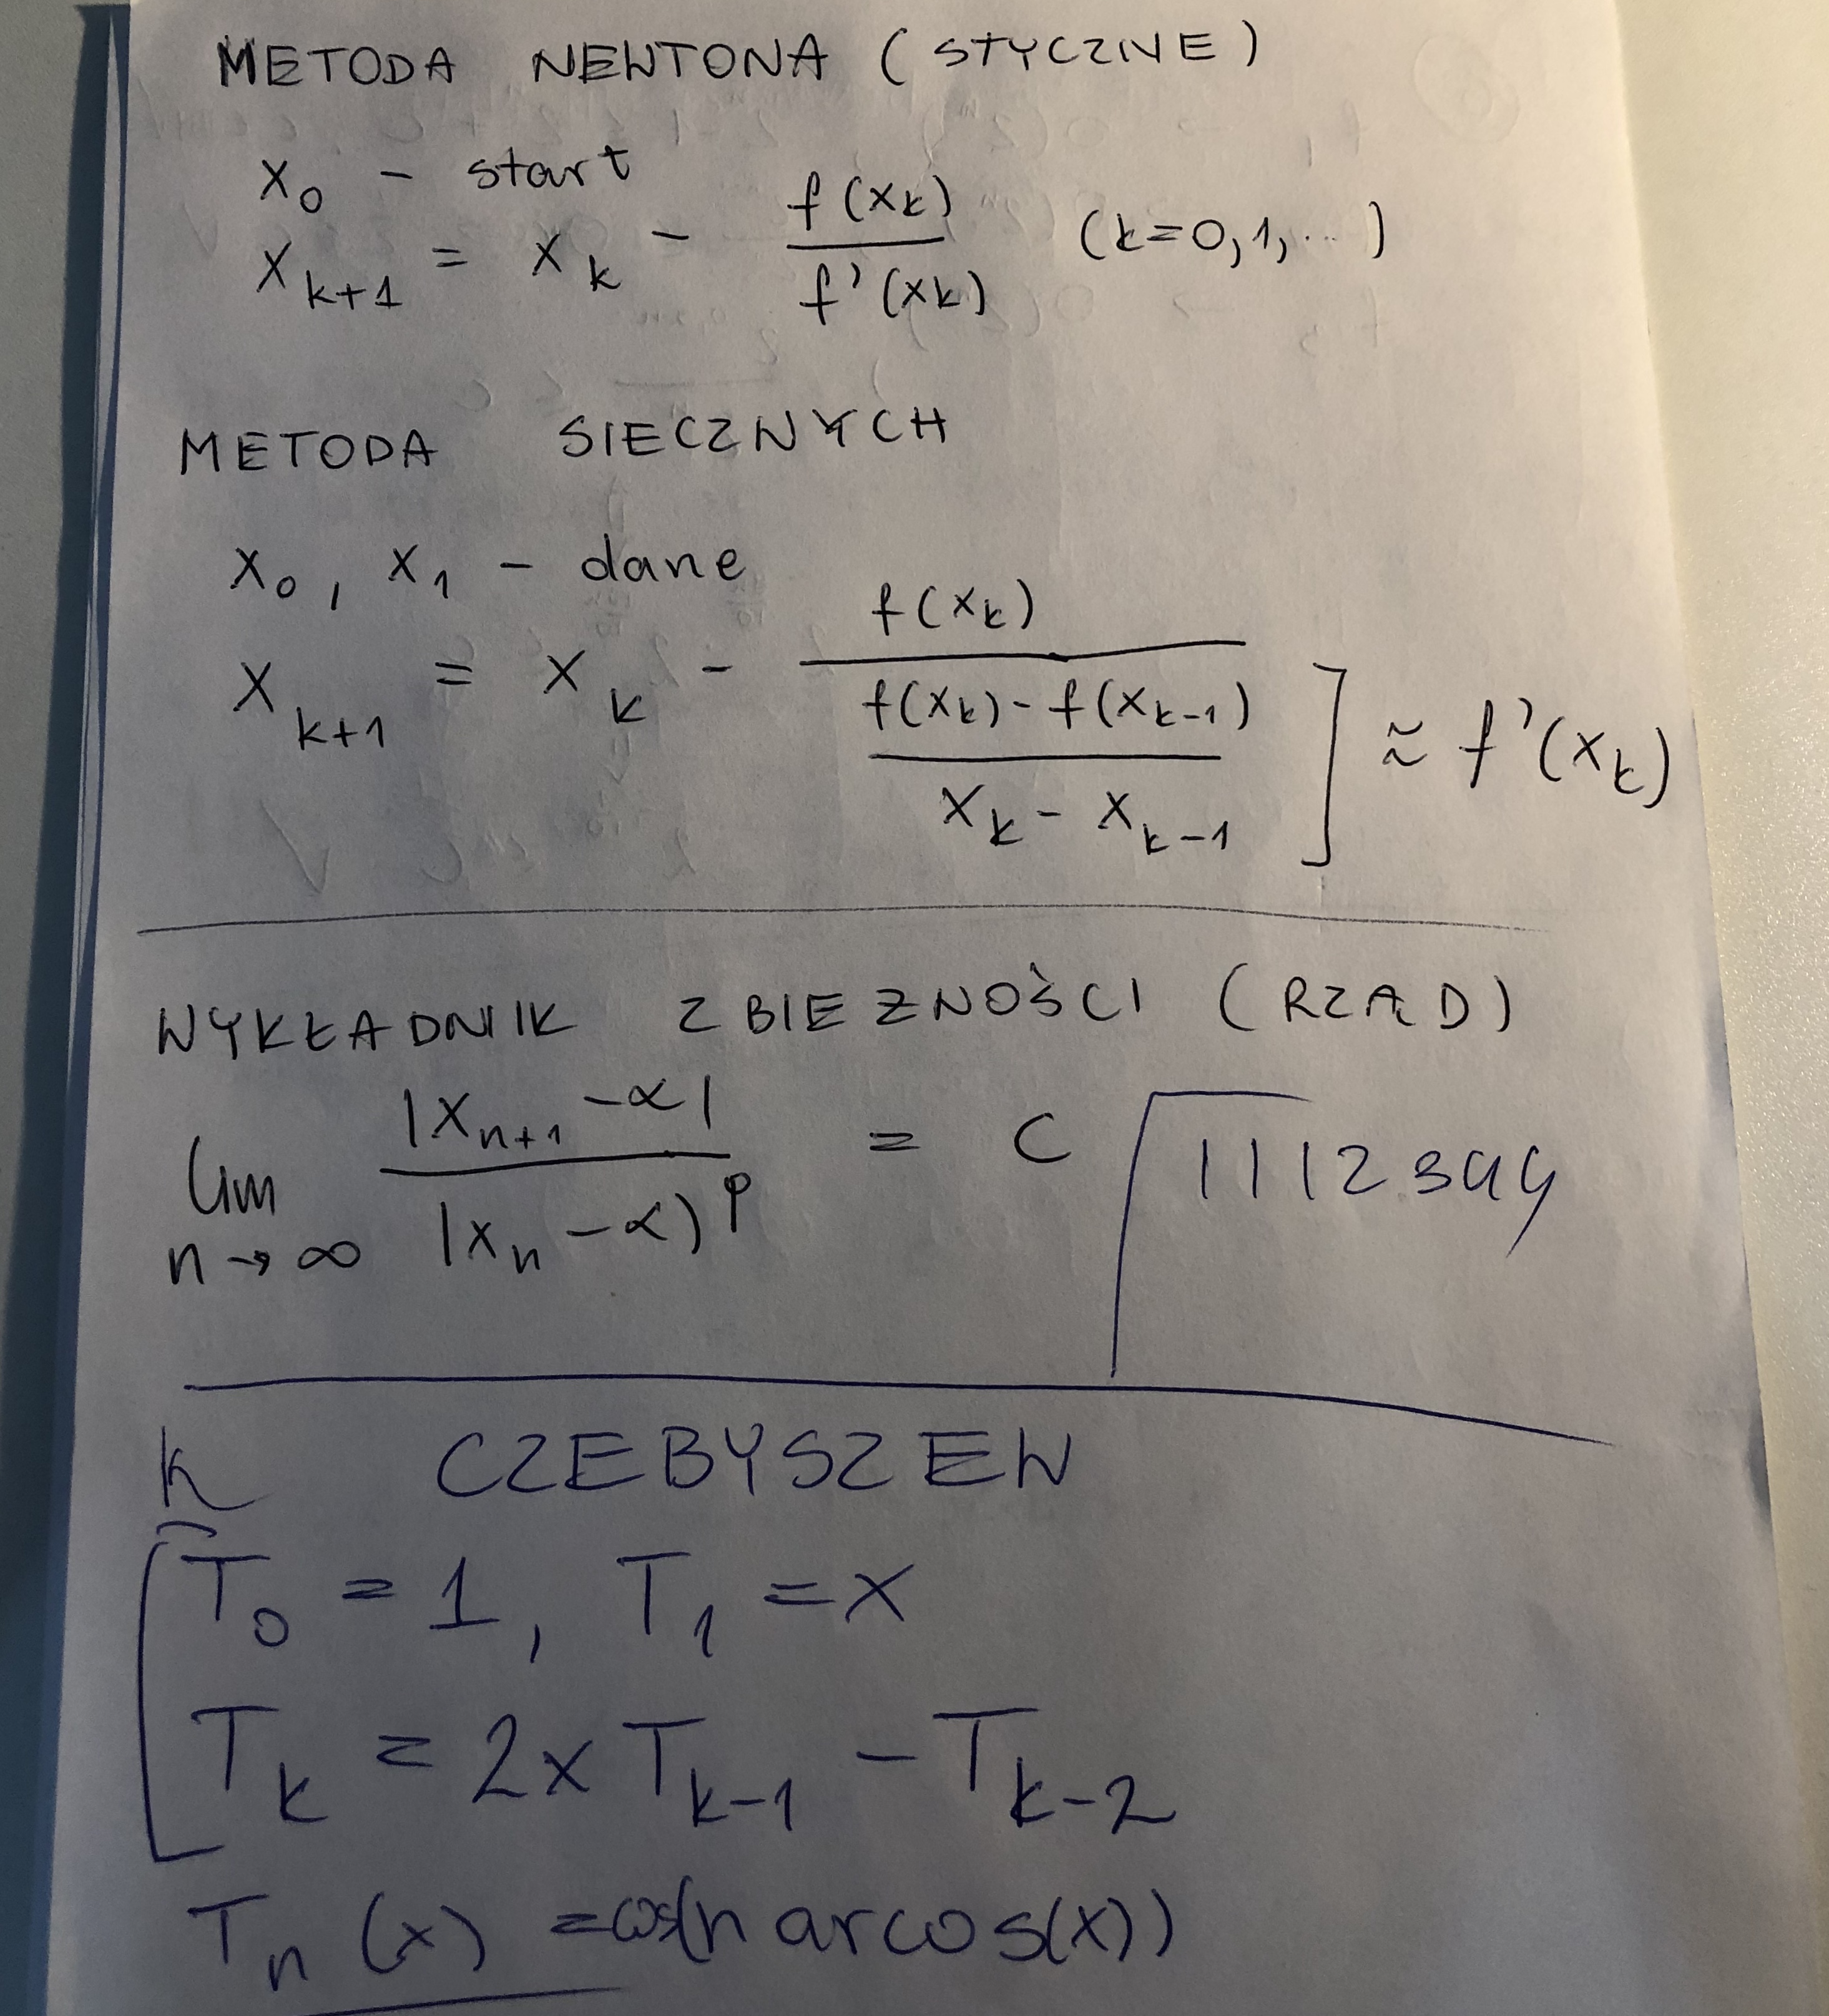 METODA NEWTONA (STYCZNE)
x₀ - start
x_{k+1} = x_k - f(x_k) / f'(x_k) (k=0,1,...)
METODA SIECZNYCH
x₀, x₁ - dane
x_{k+1} = x_k - f(x_k) / ((f(x_k) - f(x_{k-1})) / (x_k - x_{k-1})) ] ≈ f'(x_k)
WYKŁADNIK ZBIEŻNOŚCI (RZĄD)
lim_{n→∞} |x_{n+1} - α| / |x_n - α)^p = C
1112344
k CZEBYSZEW
T₀ = 1, T₁ = x
T_k = 2x T_{k-1} - T_{k-2}
T_n(x) = cos(n arcos(x))